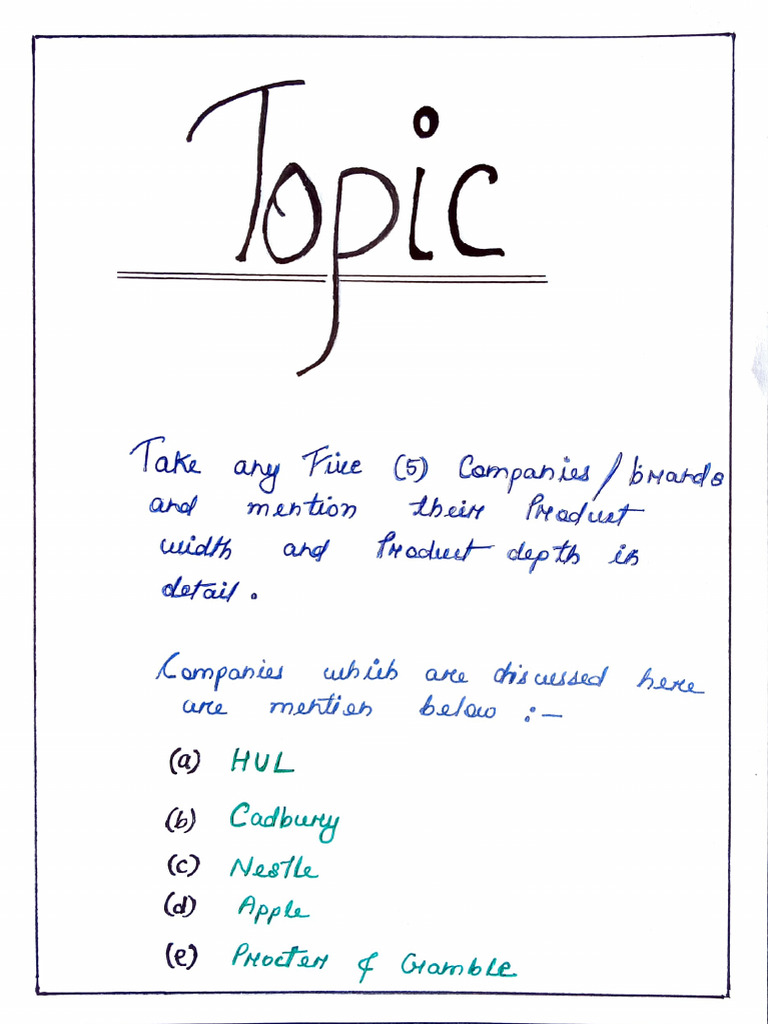 Topic
Take any Five (5) Companies / brands
and mention their Product
width and Product depth in
detail.
Companies which are discussed here
are mention below :-
(a) HUL
(b) Cadbury
(c) Nestle
(d) Apple
(e) Procter & Gamble